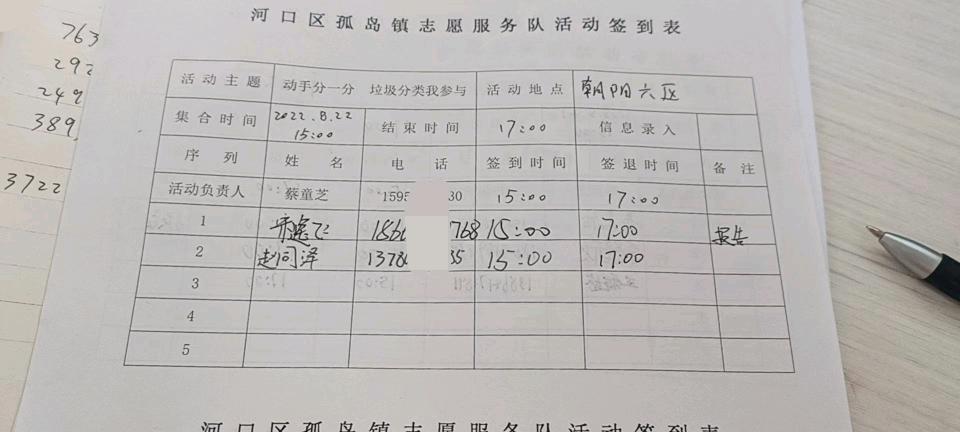 河口区孤岛镇志愿服务队活动签到表
活动主题 动手分一分 垃圾分类我参与 活动地点 朝阳六区
集合时间 2022.8.22 15:00 结束时间 17:00 信息录入
序列 姓名 电话 签到时间 签退时间 备注
活动负责人 蔡童芝 1595 30 15:00 17:00
1 186 768 15:00 17:00 报告
2 赵同泽 1378 35 15:00 17:00
3
4
5
河口区孤岛镇志愿服务队活动签到表
763
292
249
389
3722